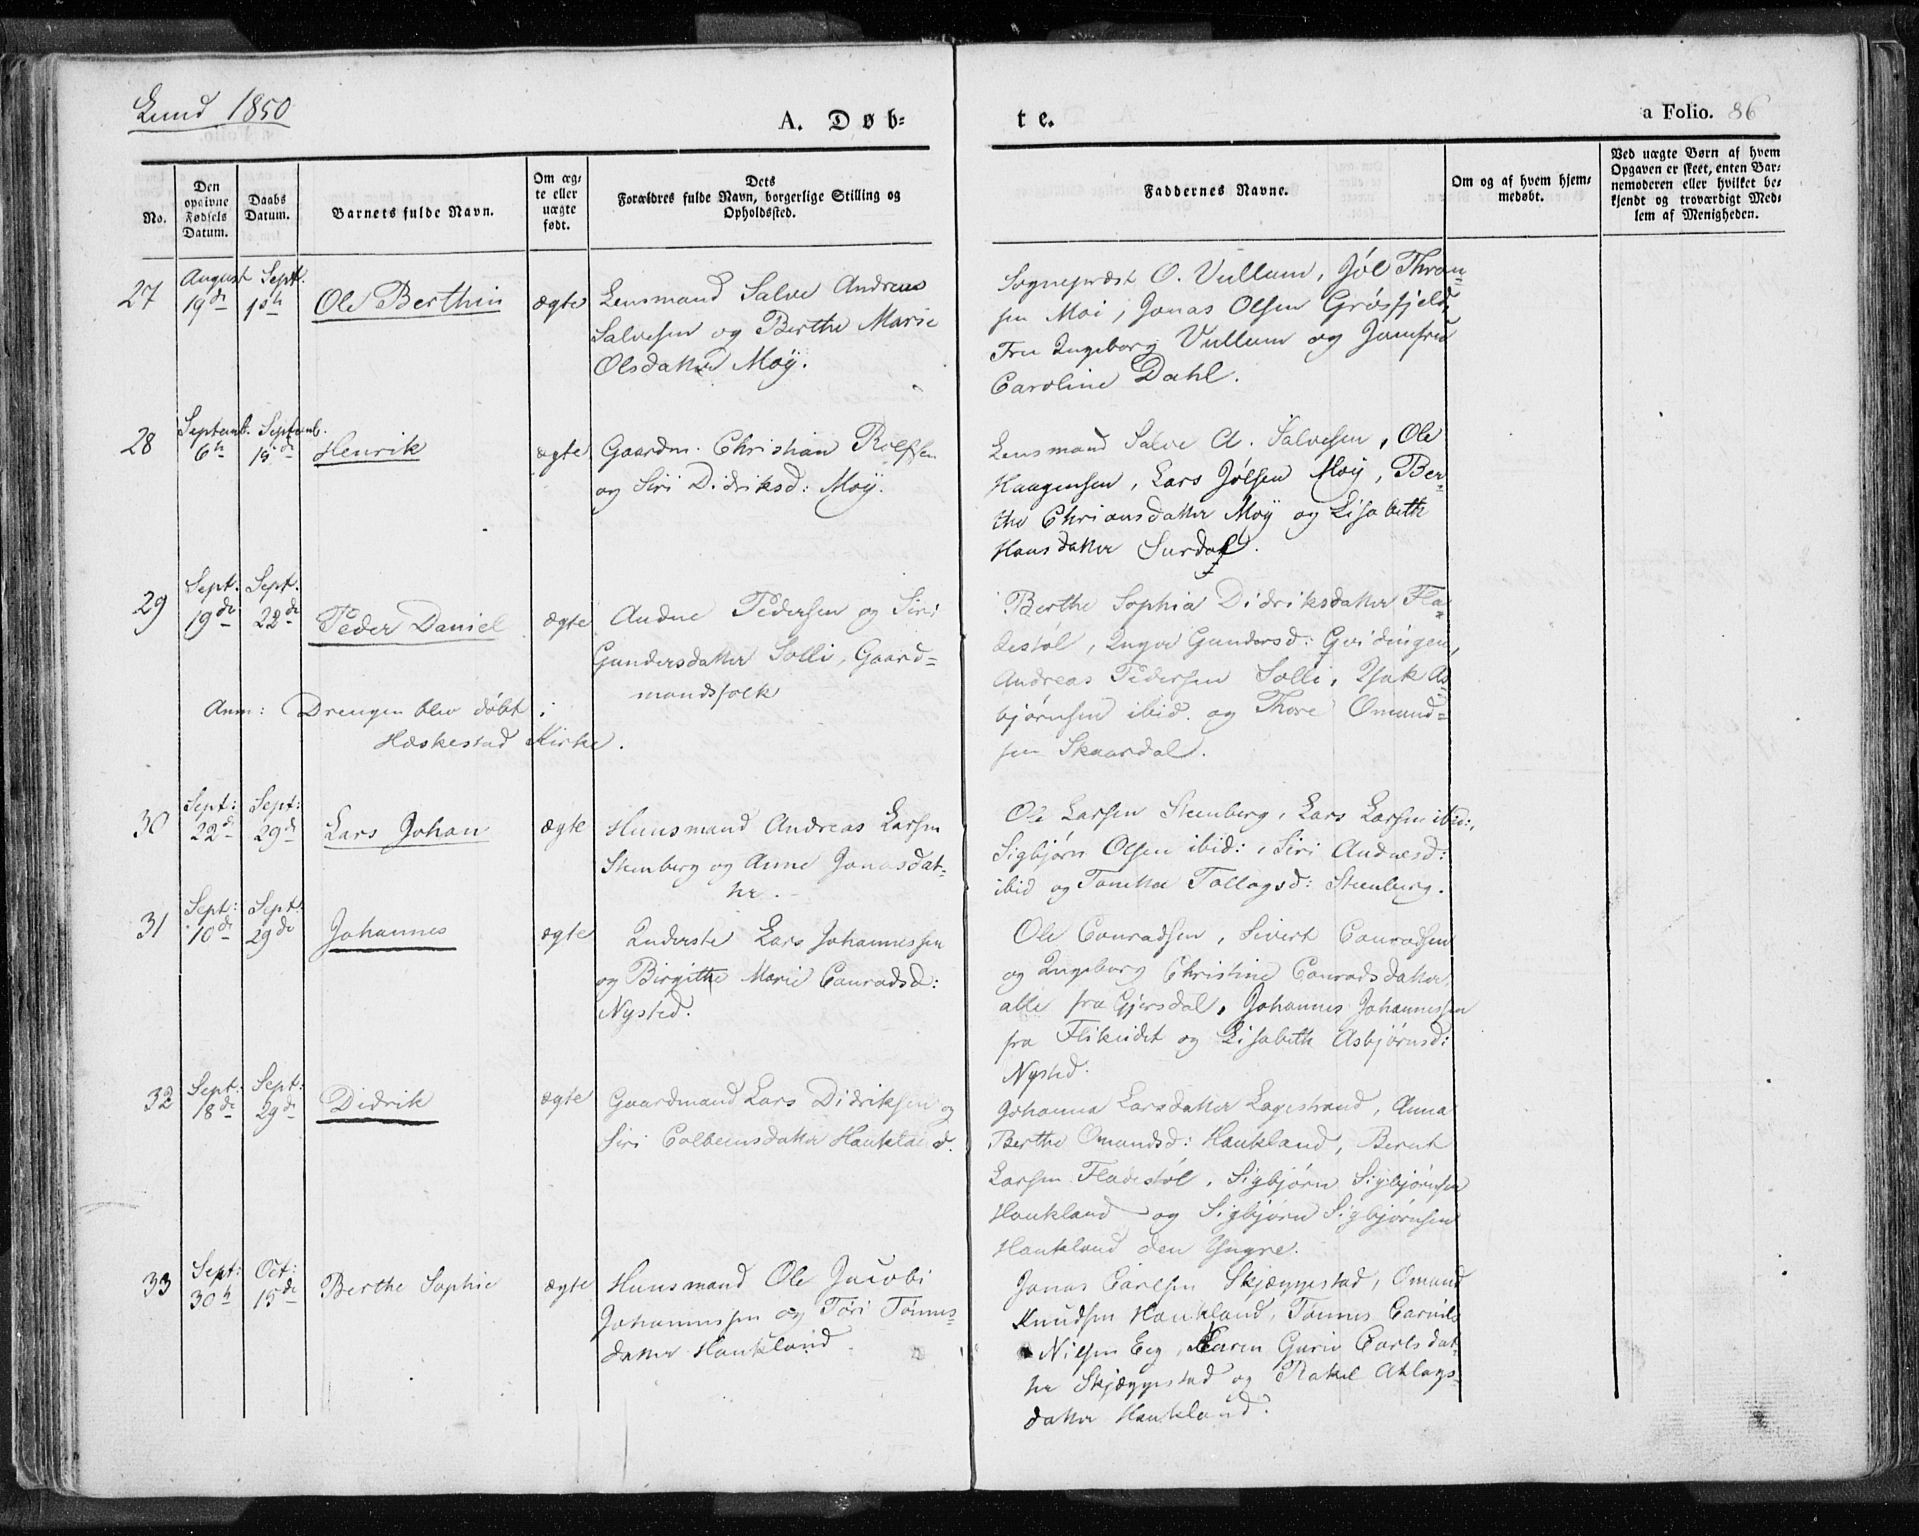 Lund 1850
A. Døb-
te.
a Folio. 86
No.
Den
opgivne
Fødsels
Datum.
Daabs
Datum.
Barnets fulde Navn.
Om æg-
te eller
uægte
født.
Dets
Forældres fulde Navn, borgerlige Stilling og
Opholdssted.
Faddernes Navne.
Om og af hvem hjem-
medøbt.
Ved uægte Børn af hvem
Opgaven er skeet, enten Bar-
nemoderen eller hvilket be-
kjendt og troværdigt Med-
lem af Menigheden.
27
August
19de
Sept.
1ste
Ole Berthin
ægte
Lensmand Salve Andreas
Salvesen og Berthe Marie
Olsdatter Moÿ.
Sognepræst O. Vullum, Jøl Thron-
sen Moi, Jonas Olsen Grøsfjeld,
Fru Ingeborg Vullum og Jomfru
Caroline Dahl.
28
Septemb.
6te
Septemb.
15de
Henrik
ægte
Gaardm. Christian Rolfsen
og Siri Didriksd: Moÿ.
Lensmand Salve A. Salvesen, Ole
Haagensen, Lars Jølsen Moÿ, Ber-
the Chriansdatter Moÿ og Lisabeth
Hansdatter Surdal.
29
Sept:
19de
Sept.
22de
Peder Daniel
ægte
Andne Pedersen og Siri
Gundersdatter Solli, Gaard-
mandsfolk
Anm: Drengen blev døbt i
Hæskestad Kirke.
Berthe Sophia Didriksdatter Fla-
destøl, Inger Gundersd: Gvidingen,
Andreas Pedersen Solli, Isak As-
bjørnsen ibid. og Thore Omund-
sen Skaardal.
30
Sept:
22de
Sept:
29de
Lars Johan
ægte
Huusmand Andreas Larsen
Steenberg og Anne Jonasdat-
ter.
Ole Larsen Steenberg, Lars Larsen ibid:,
Sigbjørn Olsen ibid:, Siri Andnesd:
ibid og Tonette Tollagsd: Steenberg.
31
Sept:
10de
Sept:
29de
Johannes
ægte
Inderste Lars Johannessen
og Birgithe Marie Conradsd:
Nysted.
Ole Conradsen, Sivert Conradsen
og Ingeborg Christine Conradsdatter
alle fra Gjersdal, Johannes Johannessen
fra Flikeidet og Lisabeth Asbjørnsd:
Nysted.
32
Sept:
18de
Sept:
29de
Didrik
ægte
Gaardmand Lars Didriksen og
Siri Colbeinsdatter Haukland.
Johanna Larsdatter Lagestrand, Anna
Berthe Omundsd: Haukland, Berent
Larsen Fladestøl, Sigbjørn Sigbjørnsen
Haukland og Sigbjørn Sigbjørnsen
Haukland den Yngre.
33
Sept:
30te
Oct:
15de
Berthe Sophie
ægte
Huusmand Ole Jacobi
Johannessen og Tøri Tønnes-
datter Haukland.
Jonas Carlsen Skjæggestad, Omund
Knudsen Haukland, Tønnes
Nilsen Eeg, Karen Gurie Carlsdat-
ter Skjæggestad og Rakel Atlags-
datter Haukland.